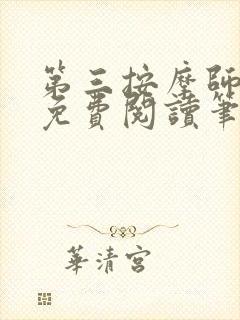 第三按摩師
免費閱讀筆
華清宮